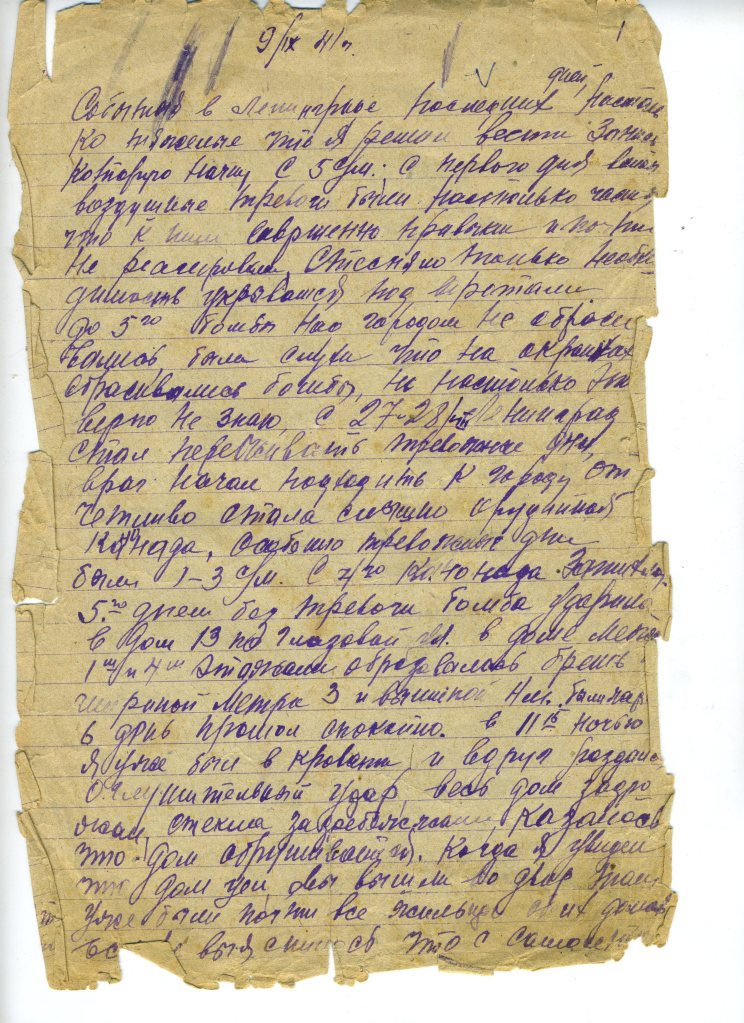 9/IX 41 г. 1
дней,
События в Ленинграде последних настоль
ко тяжелые что я решил вести
которую начну с 5 с/м. с первого дня
воздушные тревоги были настолько
что к ним совершенно привыкли и
не реагировали, стесняло только необхо
димость укрываться под воротами
до 5го бомбы над городом не сбрасы
вались, были слухи что на окраинах
сбрасывались бомбы, но настолько это
верно не знаю, с 27-28/VIII Ленинград
стал переживать тревожные дни,
враг начал подходить к городу от
четливо стала слышно орудийной
канада, особенно тревожные дни
были 1-3 с/м. С
5го днем без тревоги бомба ударила
в дом 13 по Глазовой ул. в доме между
1м и 4м этажами образовалась брешь
шириной метра 3 и вышиной
6 день прошол спокойно. в 11 ночью
я уже был в кровати, и вдруг раздался
оглушительный удар, весь дом задро
жал, стекла казалось
что дом обрушивается. Когда я увидел
что дом цел, мы вышли во двор
уже были почти все жильцы
что с самолета